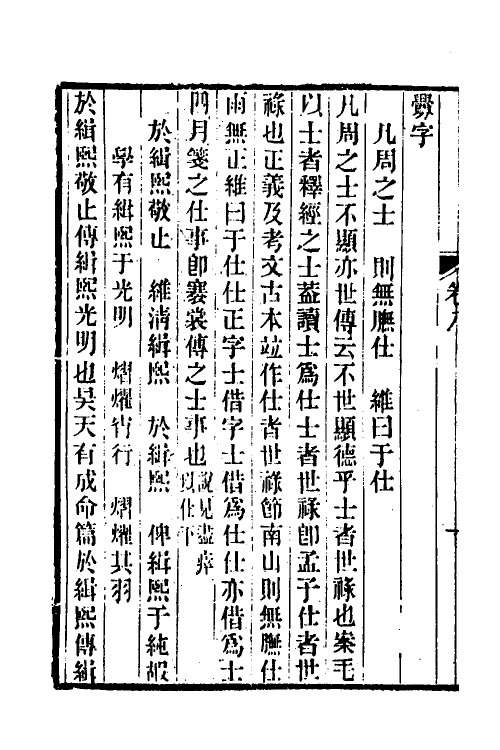 爨字
凡周之士　則無膴仕　維曰于仕
凡周之士不顯亦世傳云不世顯德乎士者世祿也案毛
以士者釋經之士葢讀士爲仕士者世祿卽孟子仕者世
祿也正義及考文古本竝作仕者世祿節南山則無膴仕
雨無正維曰于仕仕正字士借字士借爲仕仕亦借爲士
四月箋之仕事卽褰裳傳之士事也說見盡瘁以仕下
於緝熙敬止　維淸緝熙　於緝熙　俾緝熙于純嘏
學有緝熙于光明　熠燿宵行　熠燿其羽
於緝熙敬止傳緝熙光明也昊天有成命篇於緝熙傳緝
卷九